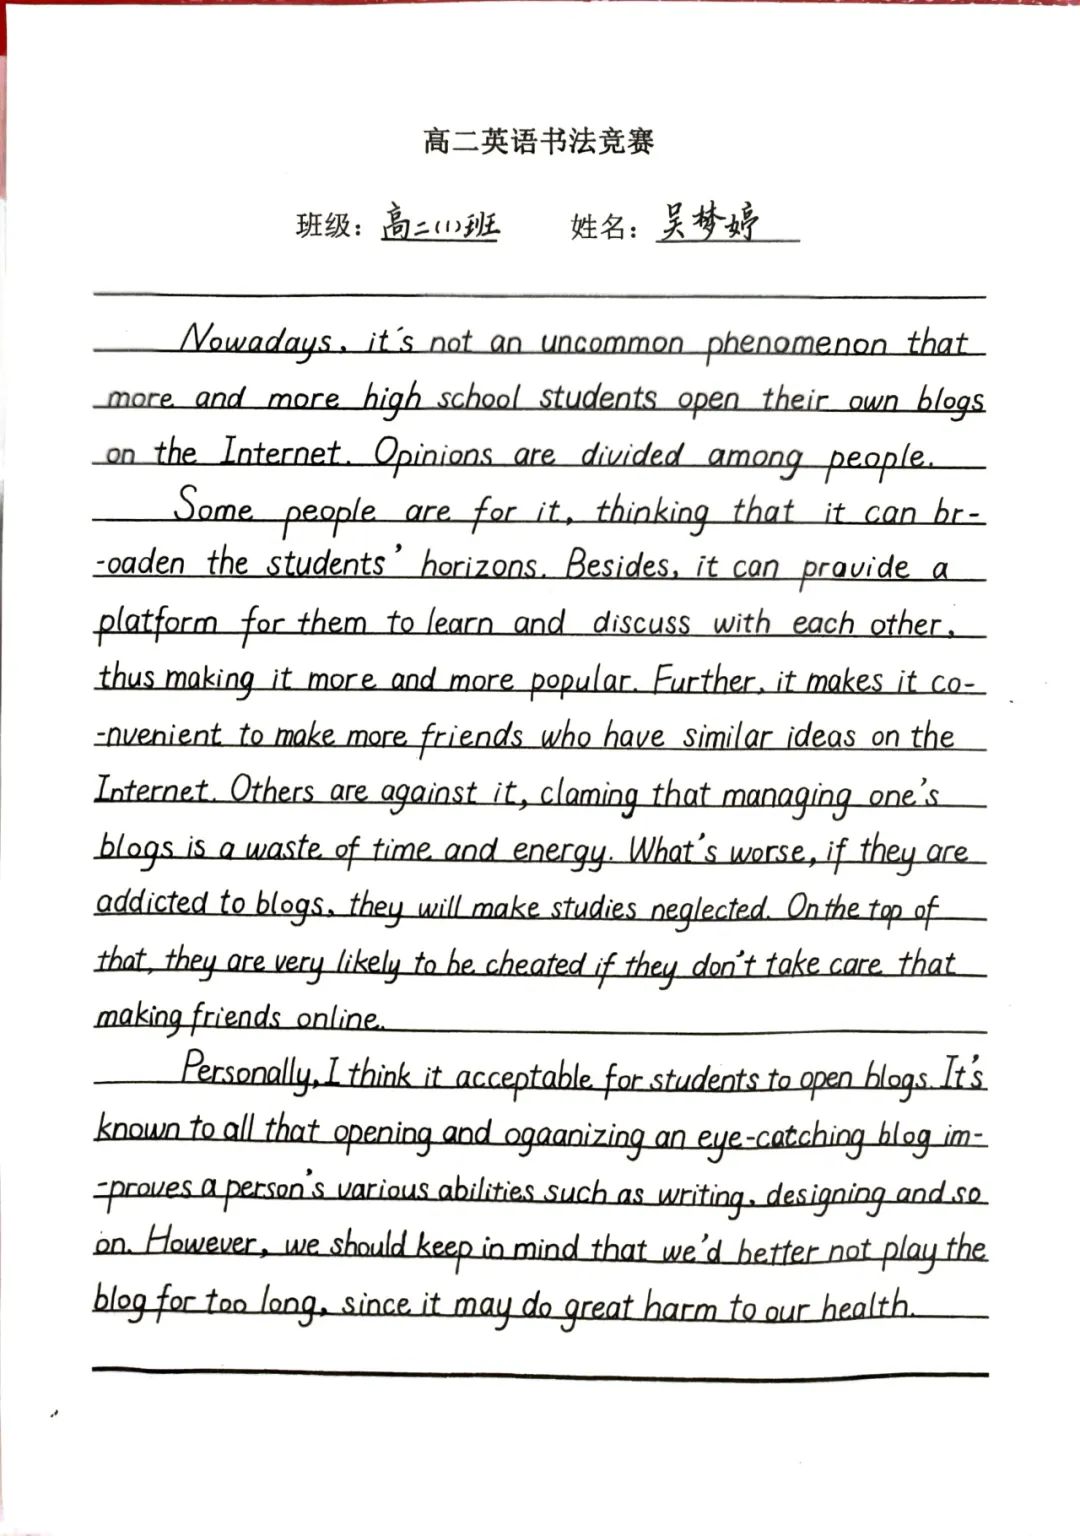 高二英语书法竞赛
班级：高二(1)班 姓名：吴梦婷
Nowadays, it's not an uncommon phenomenon that
more and more high school students open their own blogs
on the Internet. Opinions are divided among people.
Some people are for it, thinking that it can br-
-oaden the students' horizons. Besides, it can pravide a
platform for them to learn and discuss with each other,
thus making it more and more popular. Further, it makes it co-
-nvenient to make more friends who have similar ideas on the
Internet. Others are against it, claming that managing one's
blogs is a waste of time and energy. What's worse, if they are
addicted to blogs, they will make studies neglected. On the top of
that, they are very likely to be cheated if they don't take care that
making friends online.
Personally, I think it acceptable for students to open blogs. It's
known to all that opening and ogaanizing an eye-catching blog im-
-proves a person's various abilities such as writing, designing and so
on. However, we should keep in mind that we'd better not play the
blog for too long, since it may do great harm to our health.